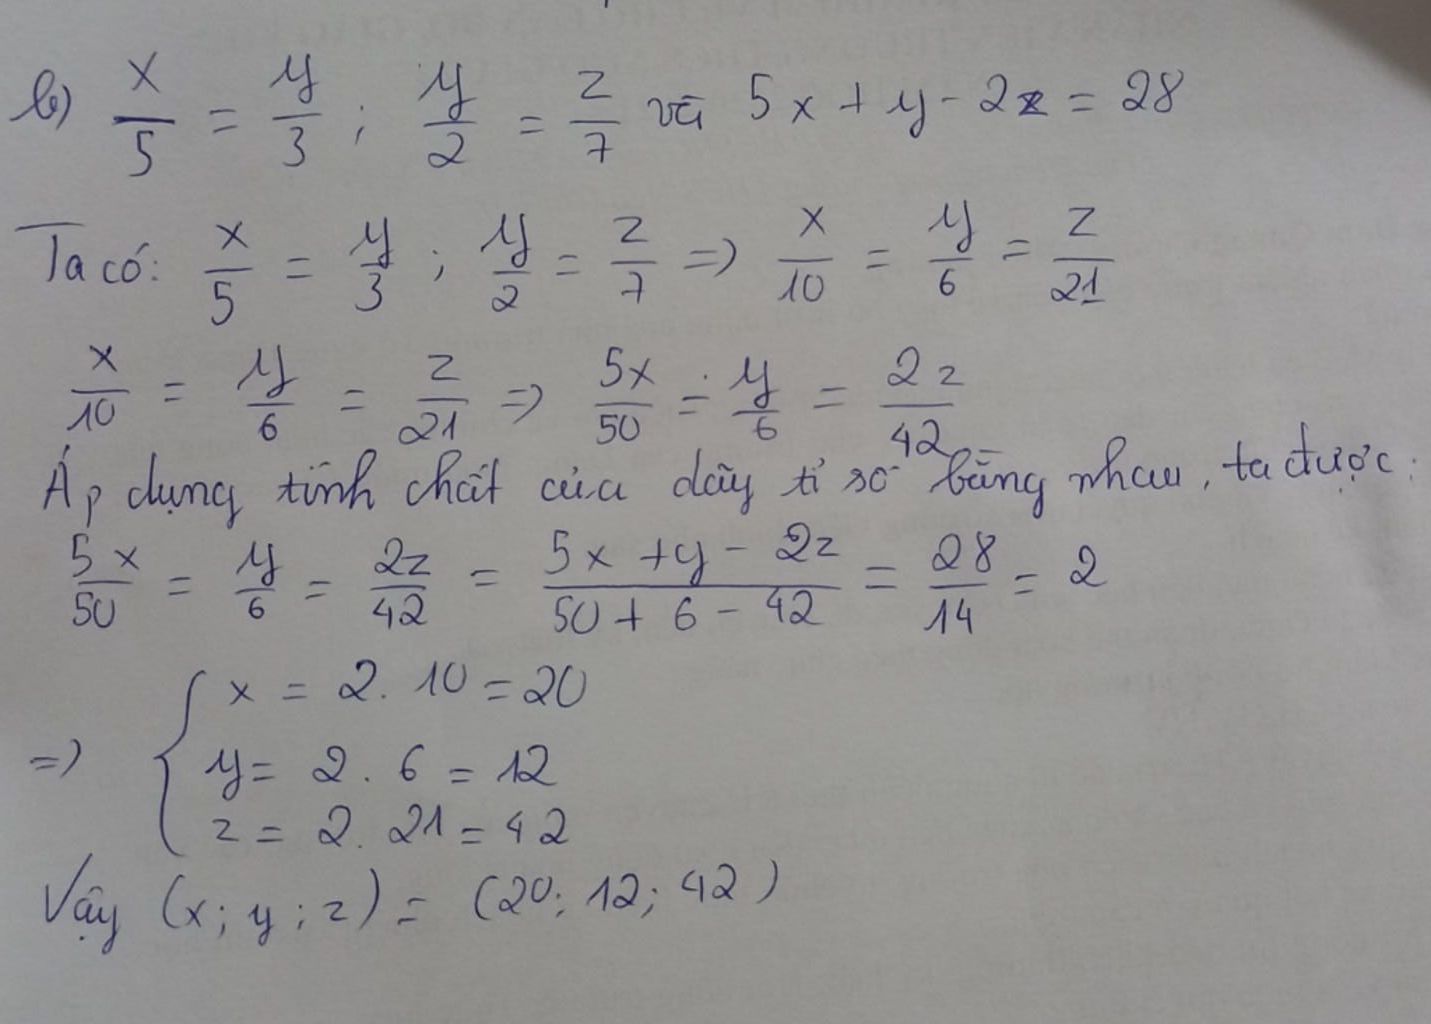 b) x/5 = y/3 ; y/2 = z/7 và 5x + y - 2z = 28
Ta có: x/5 = y/3 ; y/2 = z/7 => x/10 = y/6 = z/21
x/10 = y/6 = z/21 => 5x/50 = y/6 = 2z/42
Áp dụng tính chất của dãy tỉ số bằng nhau, ta được:
5x/50 = y/6 = 2z/42 = (5x + y - 2z)/(50 + 6 - 42) = 28/14 = 2
x = 2. 10 = 20
=> { y = 2. 6 = 12
z = 2. 21 = 42
Vậy (x; y; z) = (20; 12; 42)